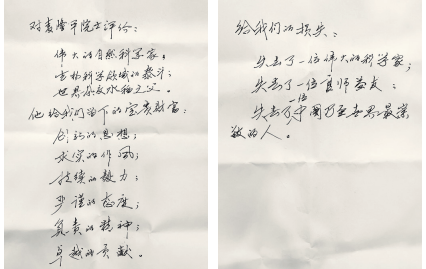 对袁隆平院士评价：
伟大的自然科学家；
农物科学领域的泰斗；
世界杂交水稻之父。
他给我们留下的宝贵财富：
创新的思想；
求实的作风；
持续的毅力；
严谨的态度；
负责的精神；
卓越的贡献。
给我们的损失：
失去了一位伟大的科学家；
失去了一位良师益友；
失去了一位中国乃至世界最崇
敬的人。